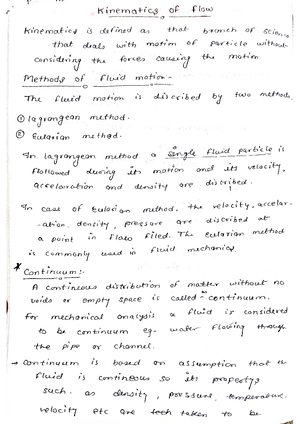 Kinematics of flow
Kinematics is defined as that branch of science
that deals with motion of particle without
considering the forces causing the motion.
Methods of fluid motion:-
The fluid motion is discribed by two methods.
① lagrangean method.
② Eularian method.
In lagrangean method a single fluid particle is
followed during its motion and its velocity,
acceloration and density are discribed.
In case of Eularian method. the velocity, accelar-
-ation, density, pressure are discribed at
a point in flow filed. The Eularian method
is commonly used in fluid mechanics.
* Continuum:-
A continuous distribution of matter without no
voids or empty space is called continuum.
for mechanical analysis a fluid is considered
to be continuum eg- water flowing through
the pipe or channel.
→ Continuum is based on assumption that the
fluid is continuous so its propertys
such as density, pressure, temperature,
velocity etc are taken to be